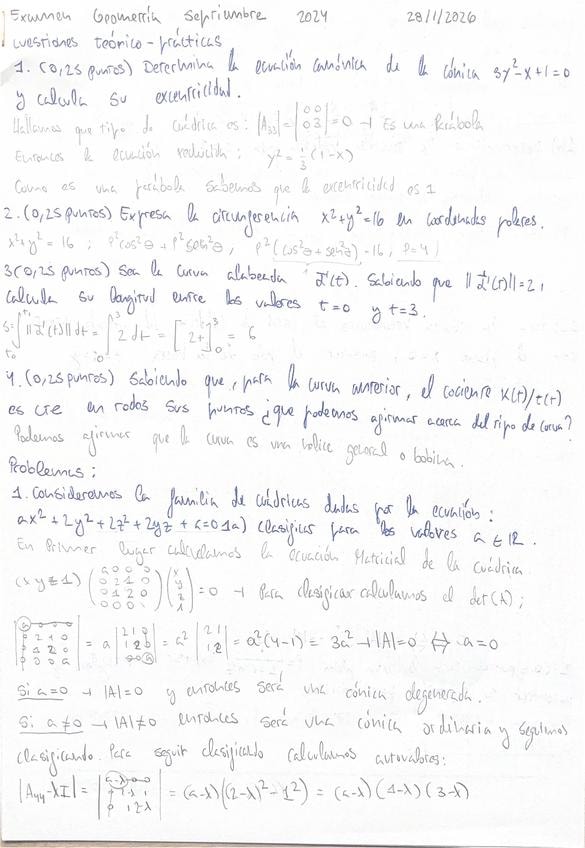 Examen Geometría septiembre 2024 28/1/2026
cuestiones teórico-prácticas
1. (0,25 puntos) Determina la ecuación canónica de la cónica 3y²-x+1=0
y calcula su excentricidad.
Hallamos que tipo de cuádrica es: |A₃₃| = |0 0; 0 3| = 0 → Es una Parábola
Entonces la ecuación reducida: y² = 1/3 (1-x)
Como es una parábola sabemos que la excentricidad es 1
2. (0,25 puntos) Expresa la circunferencia x²+y²=16 en coordenadas polares.
x²+y² = 16 ; ρ²cos²θ + ρ²sen²θ, ρ²(cos²θ+sen²θ)=16, ρ=4
3 (0,25 puntos) Sea la curva alabeada α(t). Sabiendo que ||α'(t)||=2,
calcula su longitud entre los valores t=0 y t=3.
S=∫ₜ₀ᵗ¹ ||α'(t)|| dt = ∫₀³ 2 dt = [2t]₀³ = 6
4. (0,25 puntos) Sabiendo que, para la curva anterior, el cociente K(t)/τ(t)
es cte en todos sus puntos ¿que podemos afirmar acerca del tipo de curva?
Podemos afirmar que la curva es una hélice general o bobina.
Problemas:
1. Consideremos la familia de cuádricas dadas por la ecuación:
ax²+2y²+2z²+2yz+a=0 1a) clasificar para los valores a ∈ ℝ.
En Primer lugar calculamos la ecuación Matricial de la cuádrica.
(x y z 1) (a 0 0 0; 0 2 1 0; 0 1 2 0; 0 0 0 a) (x; y; z; 1) = 0 → Para clasificar calculamos el det(A);
|a 0 0 0; 0 2 1 0; 0 1 2 0; 0 0 0 a| = a |2 1 0; 1 2 0; 0 0 a| = a² |2 1; 1 2| = a²(4-1) = 3a² → |A|=0 ⟺ a=0
Si a=0 → |A|=0 y entonces será una cónica degenerada.
Si a≠0 → |A|≠0 entonces será una cónica ordinaria y seguimos
clasificando. Para seguir clasificando calculamos autovalores:
|A₄₄-λI| = |a-λ 0 0; 0 2-λ 1; 0 1 2-λ| = (a-λ)((2-λ)²-1²) = (a-λ)(1-λ)(3-λ)